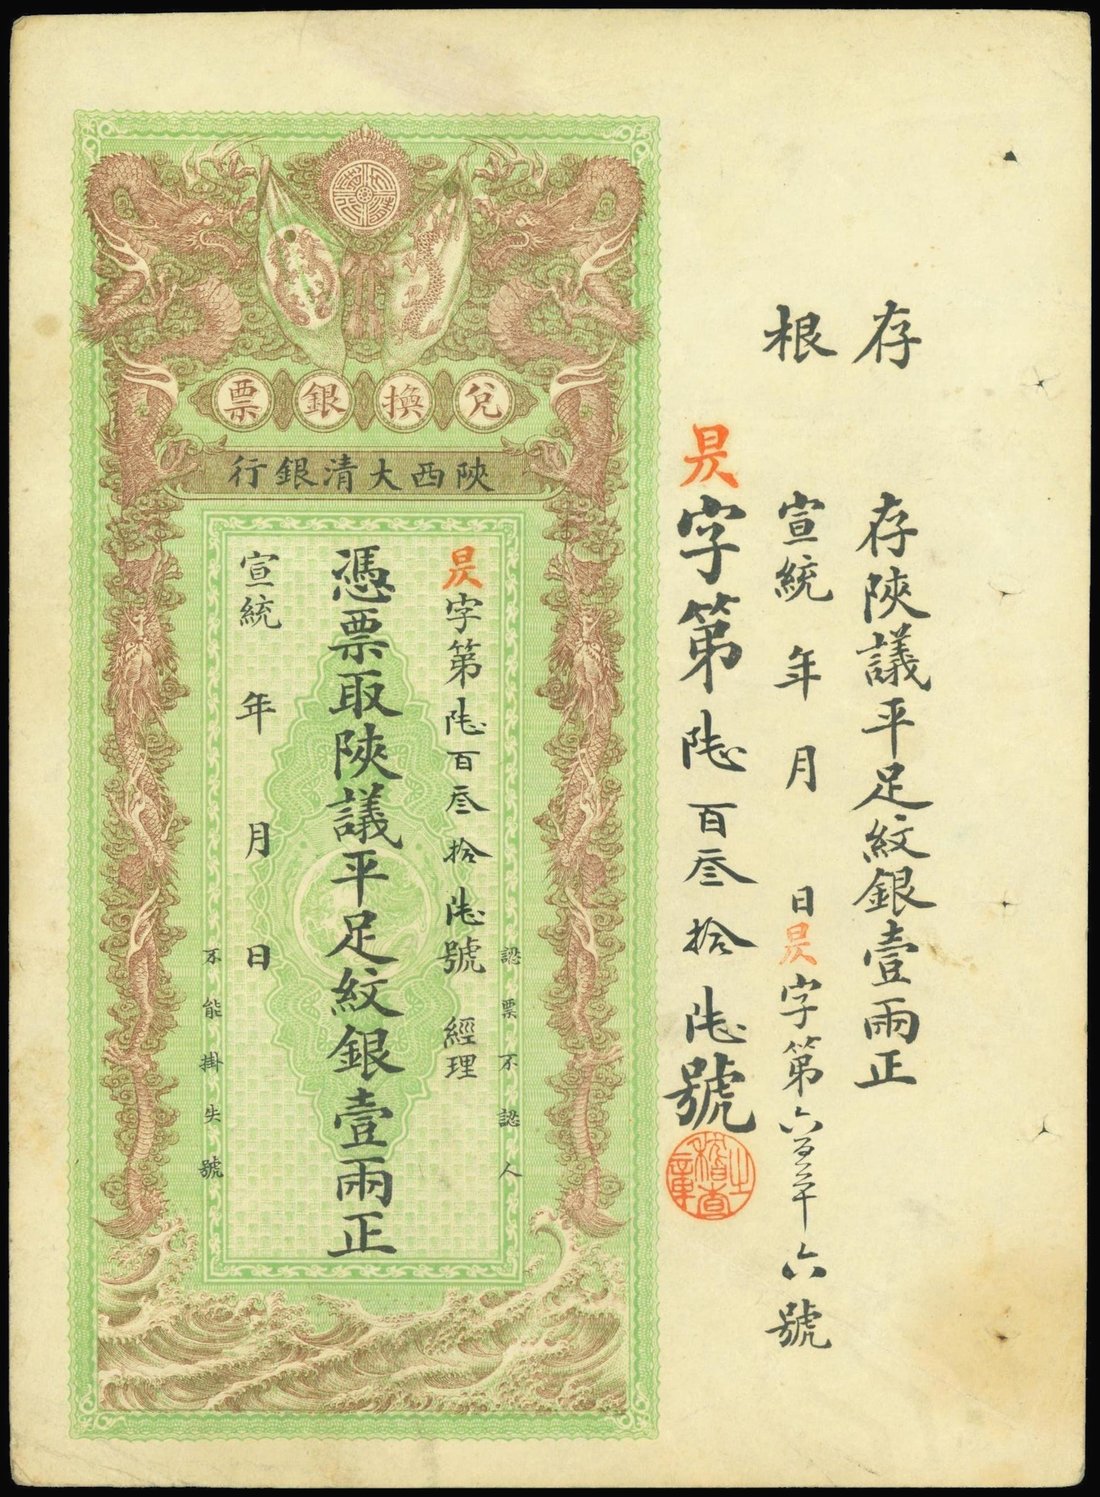 存根
存陝議平足紋銀壹兩正
宣統 年 月 日昃字第六百三十六號
昃字第陸百叁拾陸號
稽查之章
兌換銀票
陝西大清銀行
認票不認人
昃字第陸百叁拾陸號 經理
憑票取陝議平足紋銀壹兩正
宣統 年 月 日
不能掛失號